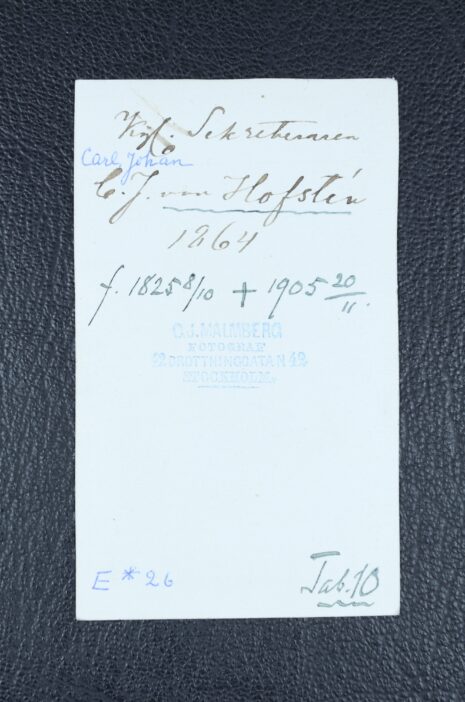 Kgl. Sekreteraren
Carl Johan
C. J. von Hofsten
1864
f. 1825 8/10 + 1905 20/11.
C.J. MALMBERG
FOTOGRAF
42 DROTTNINGGATAN 42
STOCKHOLM.
E * 26
Tab. 10